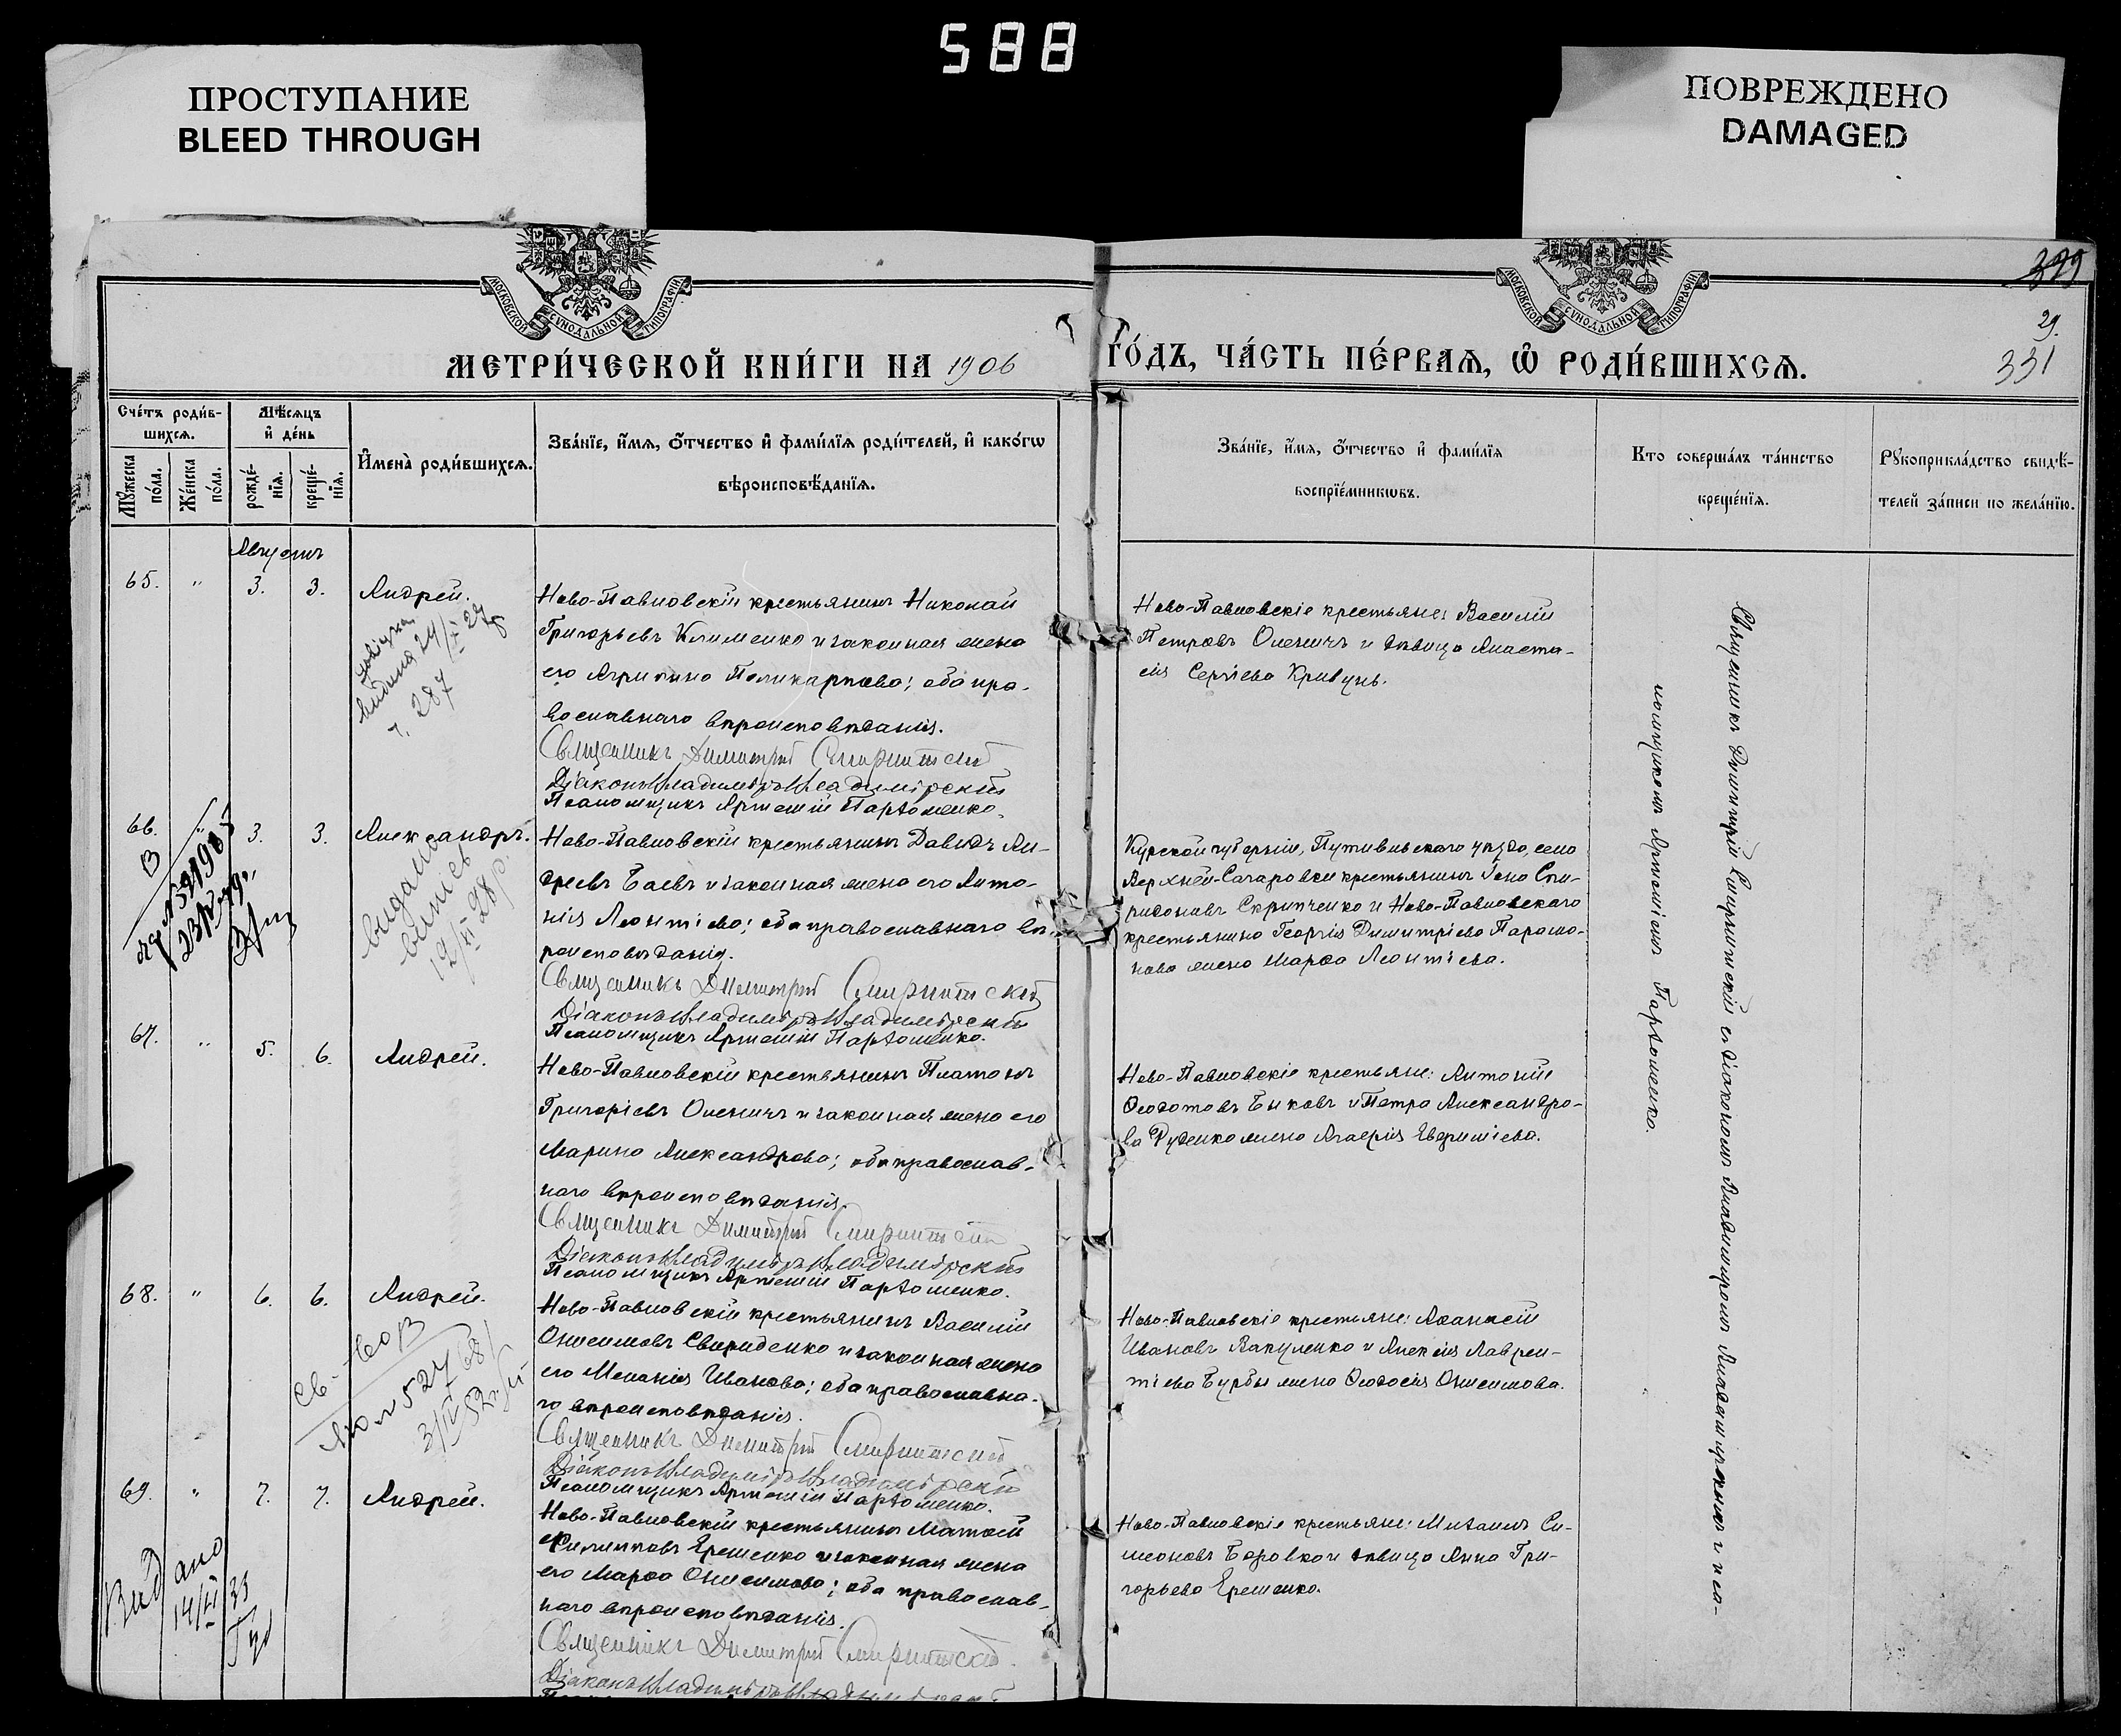 588
ПРОСТУПАНИЕ
BLEED THROUGH
ПОВРЕЖДЕНО
DAMAGED
МОСКОВСКОЙ СѴНОДАЛЬНОЙ ТИПОГРАФІИ
МОСКОВСКОЙ СѴНОДАЛЬНОЙ ТИПОГРАФІИ
29.
331
МЕТРИ́ЧЕСКОЙ КНИ́ГИ НА 1906 ГО́ДЪ, ЧА́СТЬ ПЕ́РВАѦ, Ѡ РОДИ́ВШИХСѦ.
Сче́тъ роди́в-
шихсѧ.
Мѹжеска по́ла.
Же́нска по́ла.
Мѣ́сѧцъ
и҆ де́нь
рожде́-
нїѧ.
креще́-
нїѧ.
И҆мена̀ роди́вшихсѧ.
Зва́нїе, и҆́мѧ, ѻ҆́тчество и҆ фами́лїѧ роди́телей, и҆ како́гѡ
вѣроисповѣ́данїѧ.
Зва́нїе, и҆́мѧ, ѻ҆́тчество и҆ фами́лїѧ
воспрїе́мникѡвъ.
Кто соверша́лъ та́инство
креще́нїѧ.
Рѹкоприкла́дство свидѣ́-
телей за́писи по жела́нїю.
Августъ
65. " 3. 3. Андрей.
Ново-Павловскій крестьянинъ Николай
Григорьевъ Клименко и законная жена
его Агрипина Поликарпова; оба пра-
вославнаго вѣроисповѣданія.
Священникъ Димитрій
Діаконъ Владиміръ Владимірскій
Псаломщикъ Артемій Пархоменко.
Ново-Павловскіе крестьяне: Василій
Петровъ Оленичъ и дѣвица Анаста-
сія Сергіева Кривунь.
287
66. " 3. 3. Александръ.
Ново-Павловскій крестьянинъ Давидъ Ан-
дреевъ Баевъ и законная жена его Анто-
нія Леонтіева; оба православнаго вѣ-
роисповѣданія.
Священникъ Димитрій
Діаконъ Владиміръ Владимірскій
Псаломщикъ Артемій Пархоменко.
Курской губерніи, Путивльскаго уѣзда, села
Верхней-Сагаровки крестьянинъ Іона Спи-
ридоновъ Скрипченко и Ново-Павловскаго
крестьянина Георгія Димитріева Парамо-
нова жена Марѳа Леонтіева.
видано
67. " 5. 6. Андрей.
Ново-Павловскій крестьянинъ Платонъ
Григоріевъ Оленичъ и законная жена его
Марина Александрова; оба православ-
наго вѣроисповѣданія.
Священникъ Димитрій
Діаконъ Владиміръ Владимірскій
Псаломщикъ Артемій Пархоменко.
Ново-Павловскіе крестьяне: Антоній
Ѳеодотовъ Быковъ и Петра Александро-
ва Руденко жена Агаѳія Евѳиміева.
68. " 6. 6. Андрей.
Ново-Павловскій крестьянинъ Василій
Онисимовъ Свириденко и законная жена
его Меланія Иванова; оба православна-
го вѣроисповѣданія.
Священникъ Димитрій
Діаконъ Владиміръ Владимірскій
Псаломщикъ Артемій Пархоменко.
Ново-Павловскіе крестьяне: Аѳанасій
Ивановъ Вакуленко и Алексія Лаврен-
тіева Бурбы жена Ѳеодосія Онисимова.
69. " 7. 7. Андрей.
Ново-Павловскій крестьянинъ Матѳей
Филипповъ Ерешенко и законная жена
его Марѳа Онисимова; оба православ-
наго вѣроисповѣданія.
Священникъ Димитрій
Діаконъ Владиміръ Владимірскій
Ново-Павловскіе крестьяне: Михаилъ Си-
меоновъ Боровко и дѣвица Анна Гри-
горьева Ерешенко.
Видано
Священникъ Димитрій съ діакономъ Владиміромъ Владимірскимъ и пса-
ломщикомъ Артеміемъ Пархоменко.